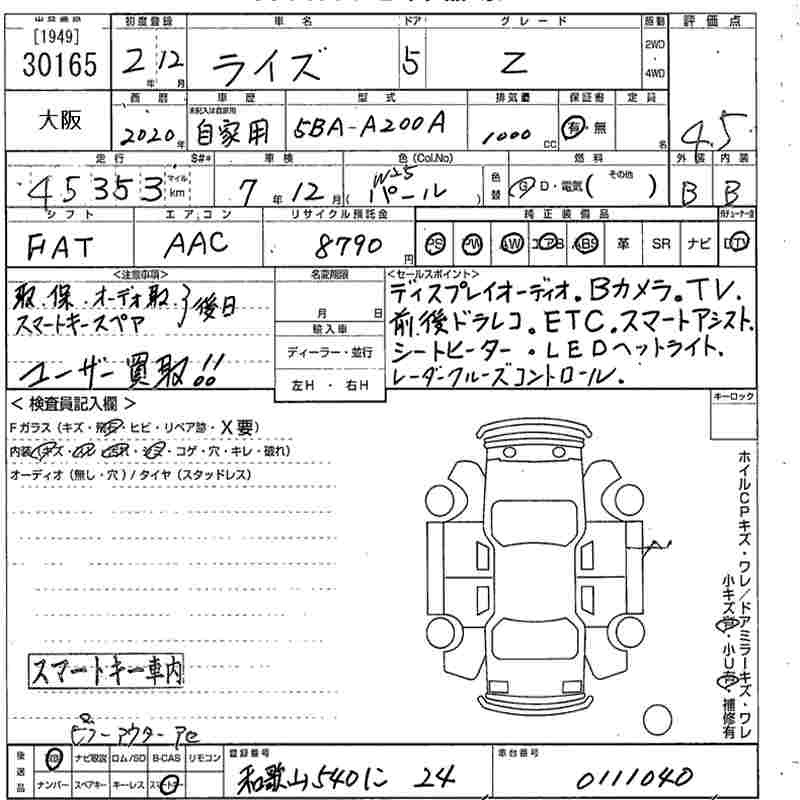 [1949]
30165
初度登録 車名 ドア グレード 駆動 評価点
2年 12月 ライズ 5 Z 2WD・4WD 4.5
大阪
西暦 車歴 型式 排気量 保証書 定員
未記入は自家用
2020年 自家用 5BA-A200A 1000cc 有・無 名
走行 S#* 車検 色(Col.No) 色替 燃料 外装 内装
45353 マイル km 7年 12月 ( W25 パール ) G・D・電気( その他 ) B B
シフト エアコン リサイクル預託金 純正装備品
FIAT AAC 8790円 PS PW AW エアB ABS 革 SR ナビ DTV
<注意事項> 名変期限 <セールスポイント>
取、保、オーディオ取 }後日
スマートキースペア
ユーザー買取!!
月 日
輸入車
ディーラー・並行
左H ・ 右H
ディスプレイオーディオ。Bカメラ。TV.
前後ドラレコ。ETC.スマートアシスト.
シートヒーター・LEDヘットライト.
レーダークルーズコントロール.
< 検査員記入欄 >
キーロック
Fガラス(キズ・飛石・ヒビ・リペア跡・X要)
・コゲ・穴・キレ・破れ)
オーディオ(無し・穴)/タイヤ(スタッドレス)
ホイルCPキズ・ワレ/ドアミラーキズ・ワレ
小キズ有・小U有・補修有
スマートキー車内
後送品 ナビ取説 ロム/SD B-CAS リモコン
ナンバー スペアキー キーレス スマートキー
登録番号 車台番号
和歌山540に 24 0111040